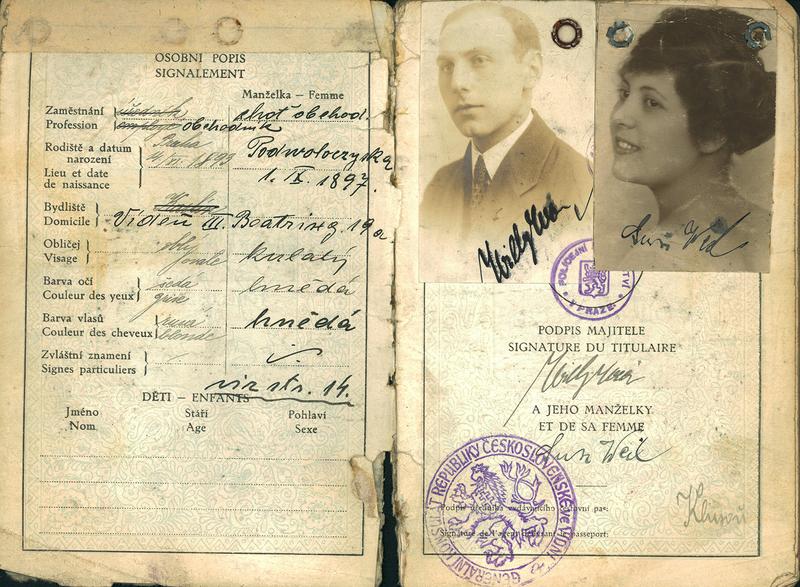 OSOBNÍ POPIS
SIGNALEMENT
Manželka – Femme
Zaměstnání
Profession
úředník
obchodník
choť obchod.
Rodiště a datum
narození
Lieu et date
de naissance
Praha
Podwoloczyska
1. IX. 1897.
Bydliště
Domicile
Vídeň III. Beatrixg. 19a
Obličej
Visage
oblý
ovale
kulatý
Barva očí
Couleur des yeux
šedá
grise
hnědá
Barva vlasů
Couleur des cheveux
rusá
blonde
hnědá
Zvláštní znamení
Signes particuliers
viz str. 14.
DĚTI – ENFANTS
Jméno
Nom
Stáří
Age
Pohlaví
Sexe
Willy Weil
Susi Weil
POLICEJNÍ
V PRAZE
PODPIS MAJITELE
SIGNATURE DU TITULAIRE
Willy Weil
A JEHO MANŽELKY
ET DE SA FEMME
Susi Weil
GENERÁLNÍ KONSULÁT REPUBLIKY ČESKOSLOVENSKÉ VE VÍDNI
Podpis úředníka vydávajícího cestovní pas:
Signature de l'agent délivrant le passeport: